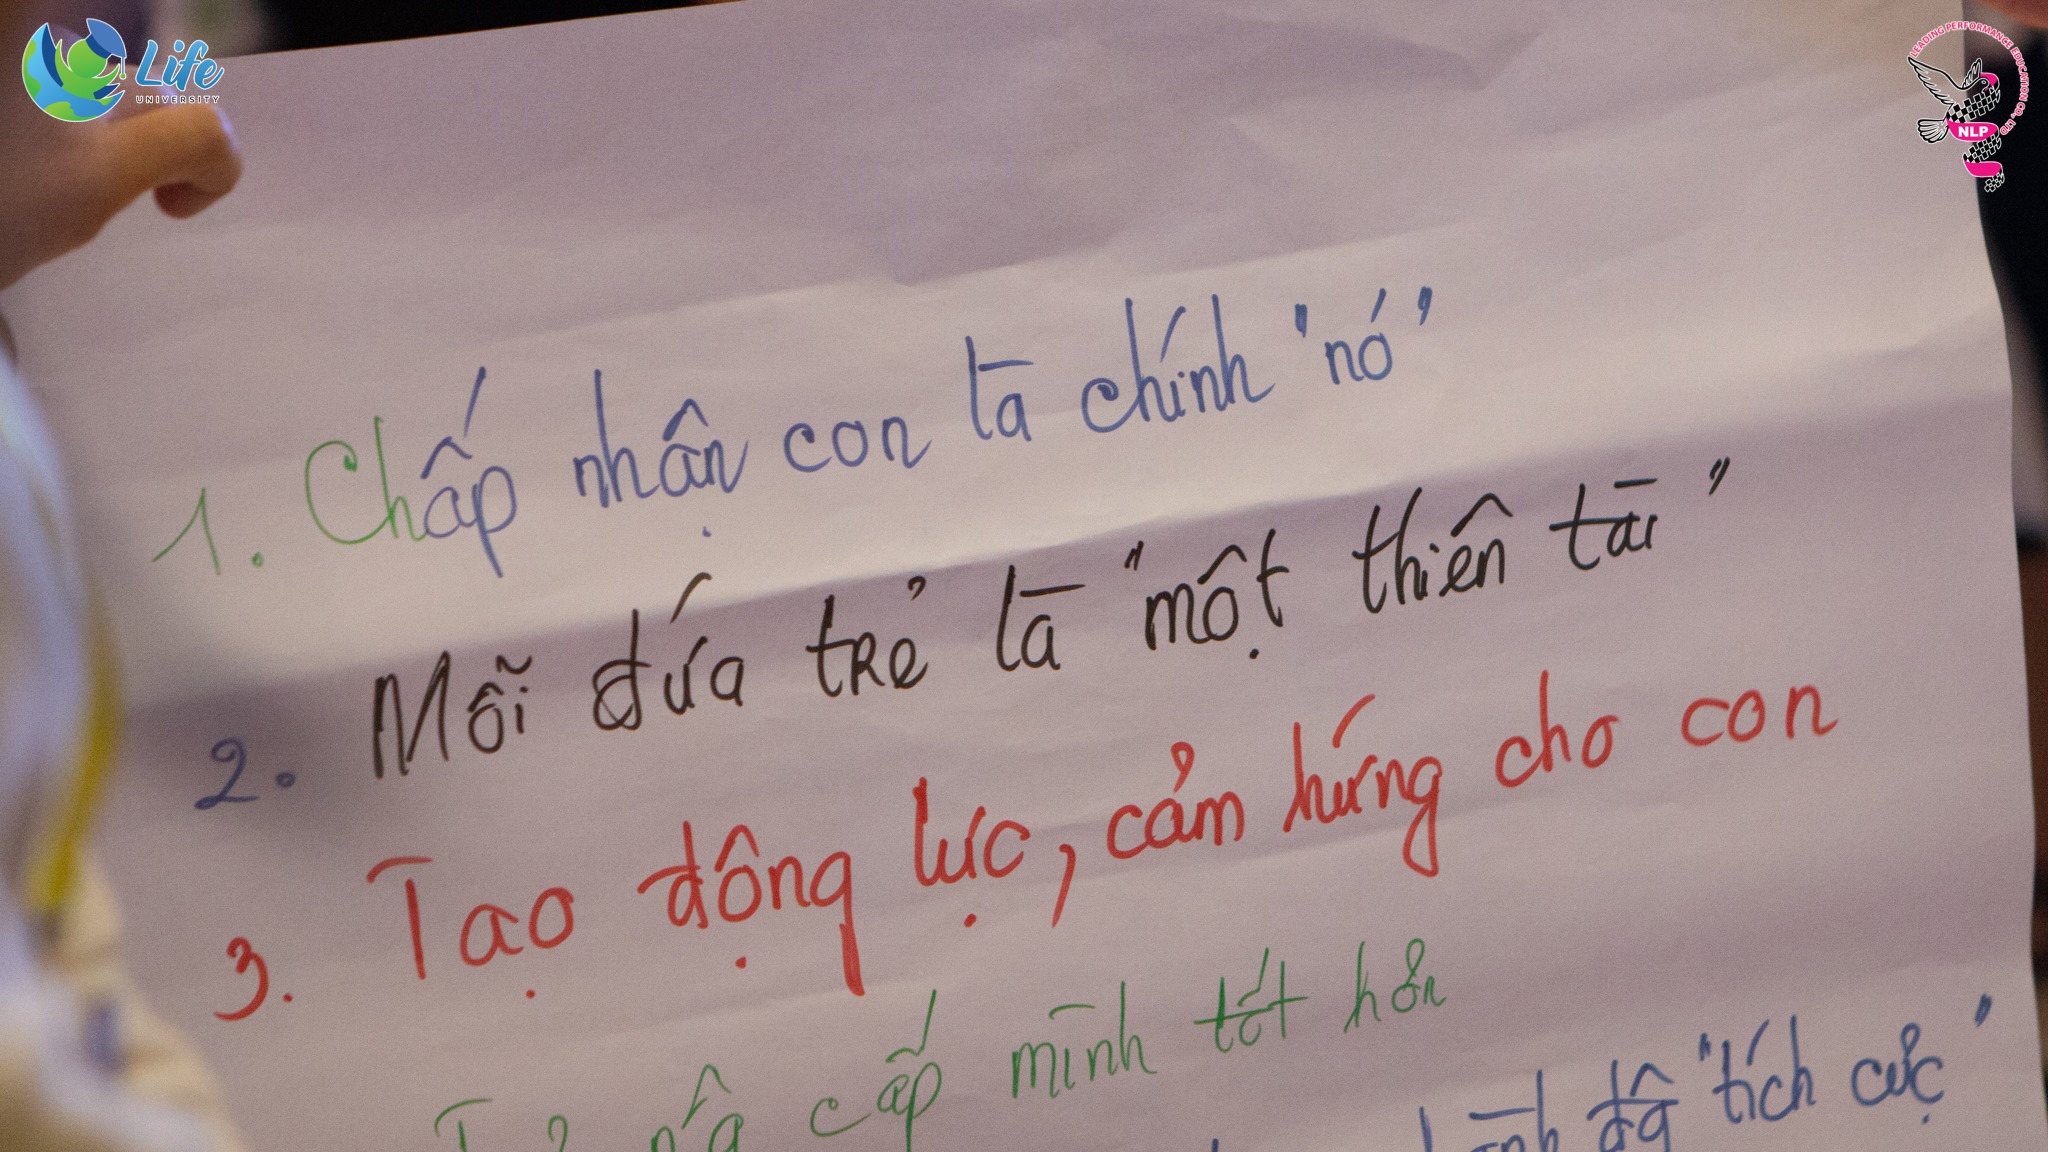 Life
UNIVERSITY
LEADING PERFORMANCE EDUCATION CO., LTD
NLP
1. Chấp nhận con là chính "nó"
2. Mỗi đứa trẻ là "một thiên tài"
3. Tạo động lực, cảm hứng cho con
cấp mình tốt hơn
"tích cực"